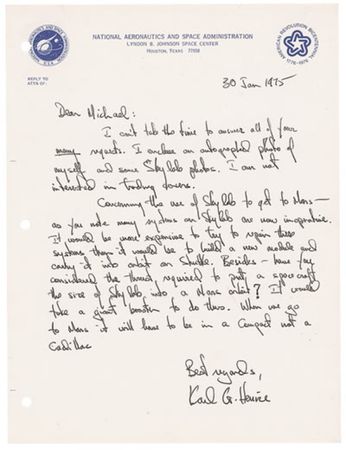 NATIONAL AERONAUTICS AND SPACE ADMINISTRATION
LYNDON B. JOHNSON SPACE CENTER
HOUSTON, TEXAS 77058
AMERICAN REVOLUTION BICENTENNIAL
1776-1976
REPLY TO
ATTN OF:
30 Jan 1975
Dear Michael:
I can't take the time to answer all of your
many requests. I enclose an autographed photo of
myself and some Skylab photos. I am not
interested in trading covers.
Concerning the use of Skylab to get to Mars —
as you note many systems on Skylab are now inoperative.
It would be more expensive to try to repair these
systems than it would be to build a new module and
carry it into orbit on Shuttle. Besides - have you
considered the thrust required to put a spacecraft
the size of Skylab into a Mars orbit? It would
take a giant booster to do this. When we go
to Mars it will have to be in a Compact not a
Cadillac
Best regards,
Karl G. Henize